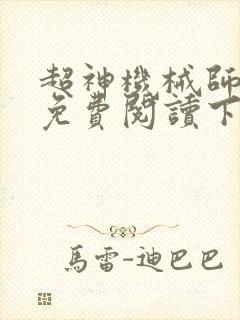 超神機械師
免費閱讀下
馬雷-迪巴巴